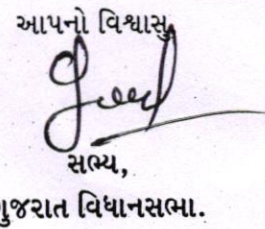 આપનો વિશ્વાસુ
સભ્ય,
ગુજરાત વિધાનસભા.